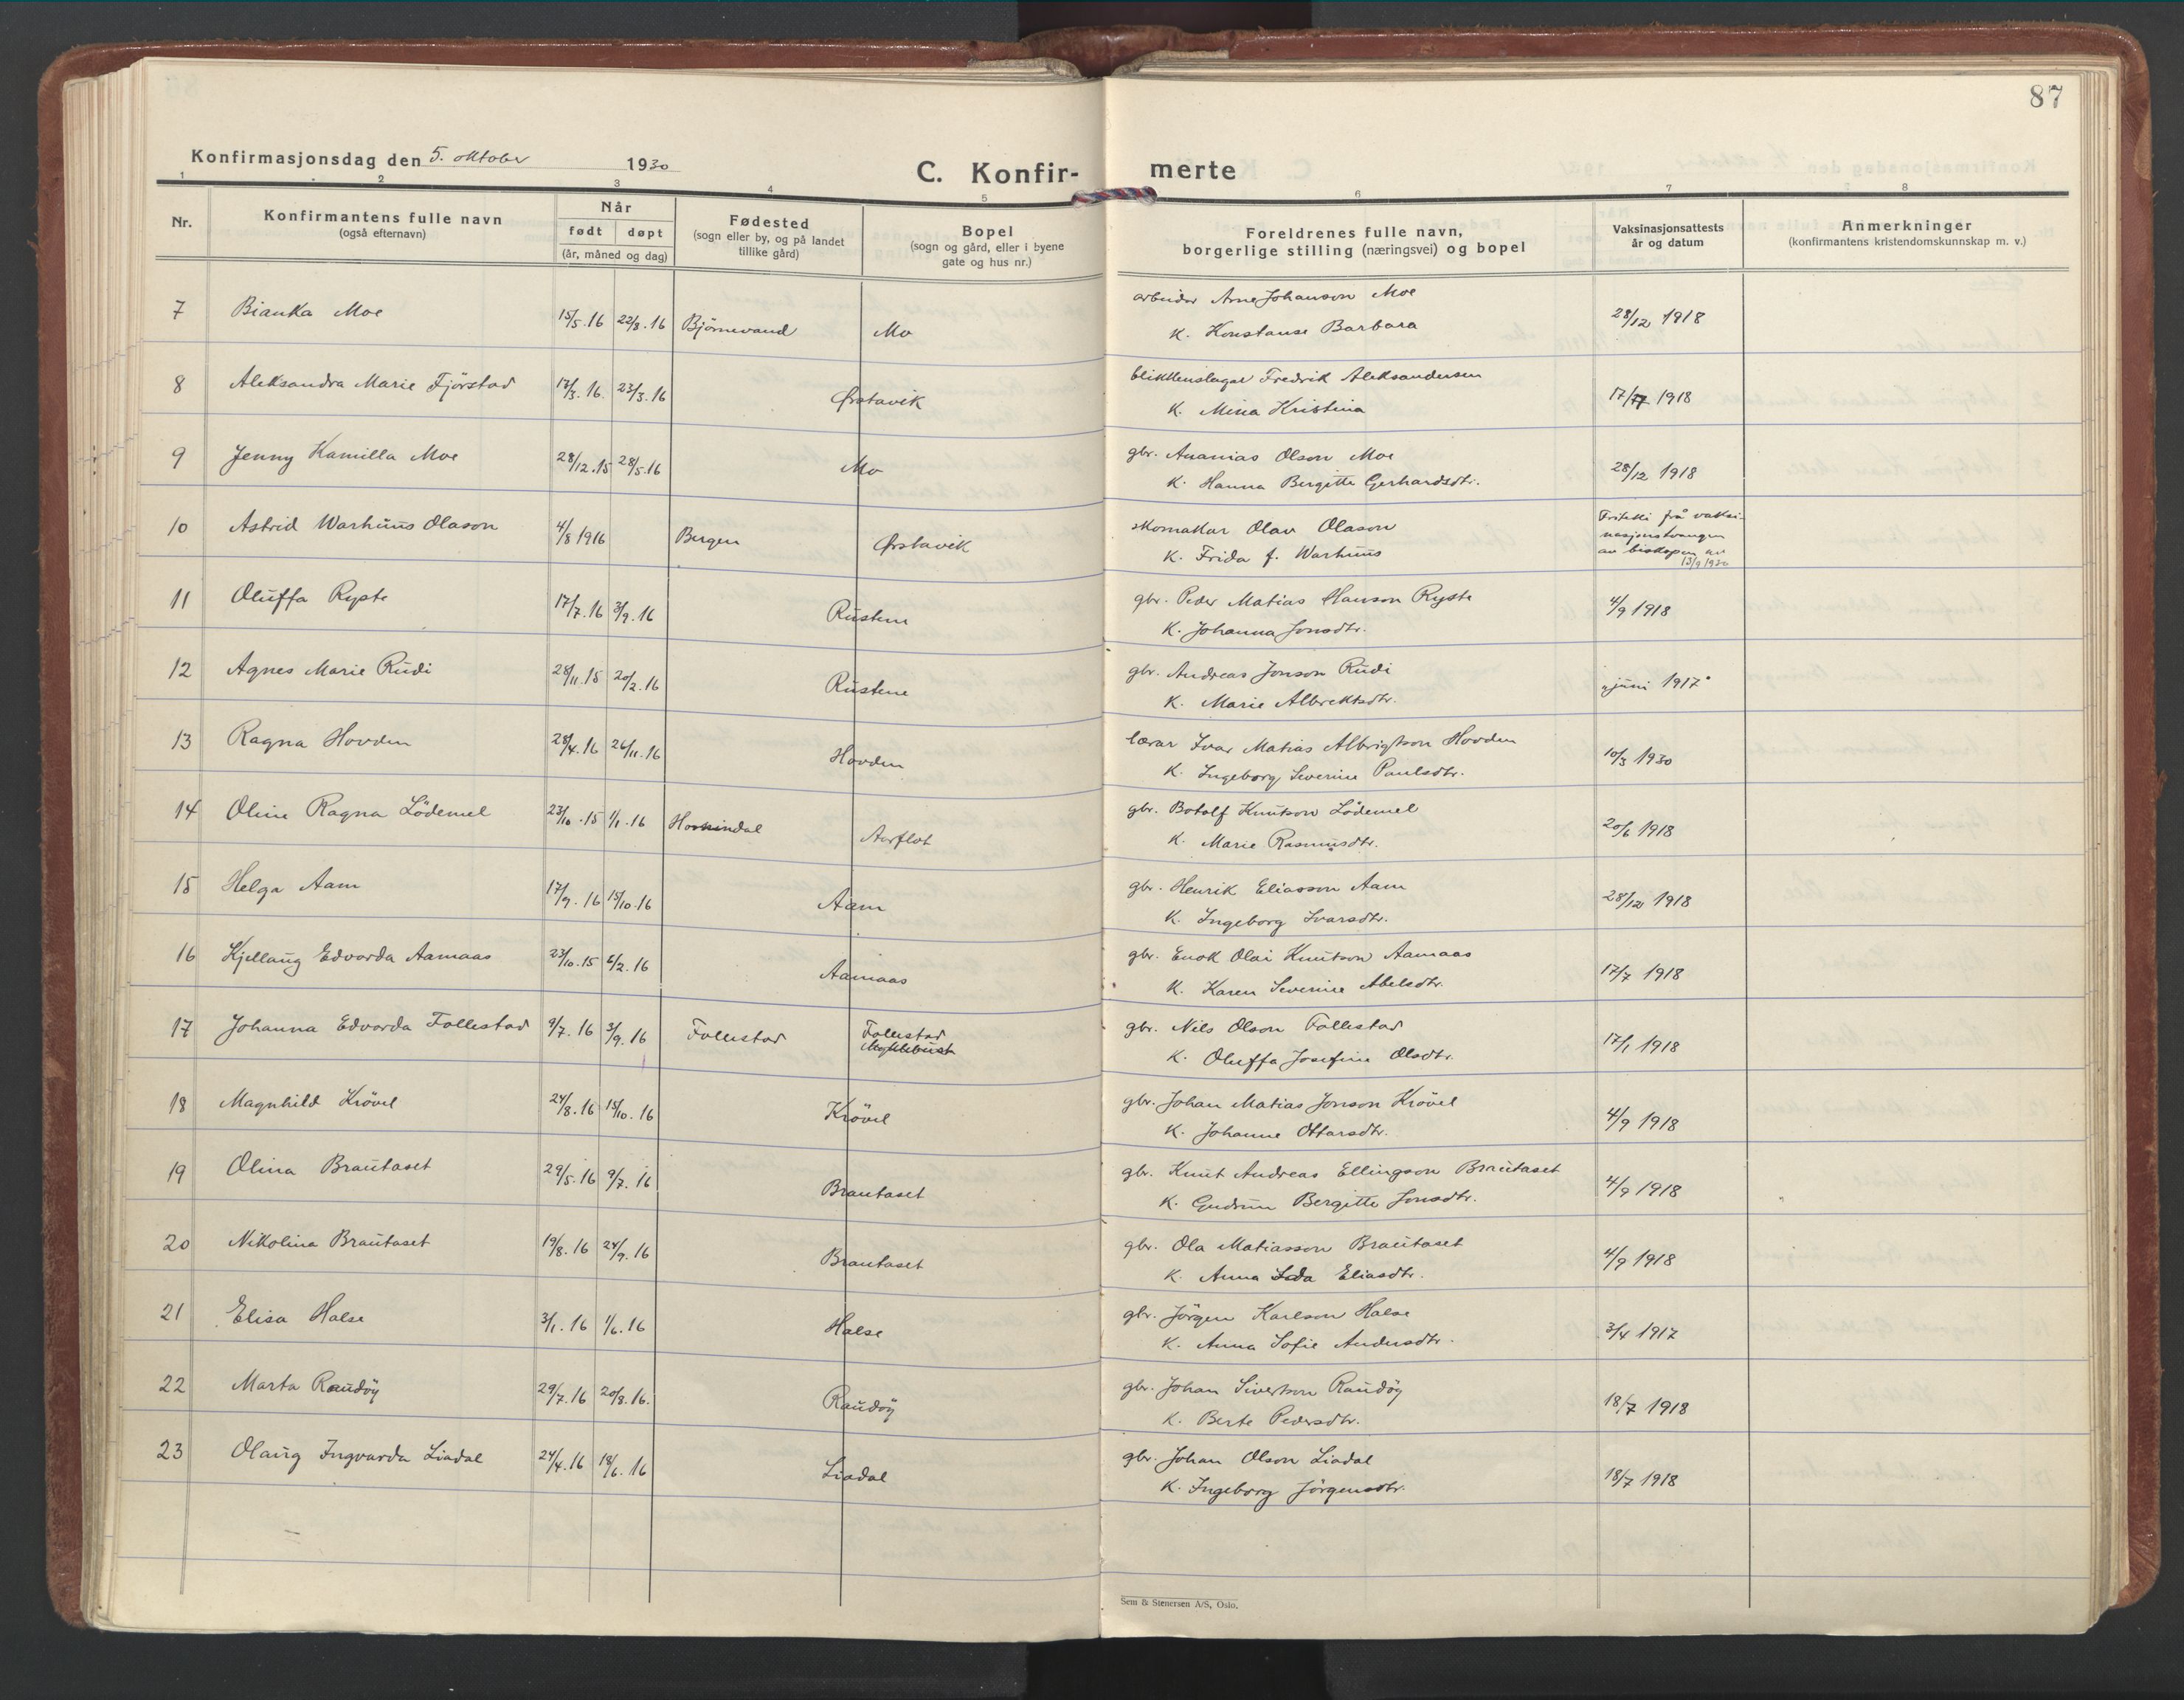 87
Konfirmasjonsdag den 5. oktober 1930
C. Konfir- merte
1 2 3 4 5 6 7 8
Nr. Konfirmantens fulle navn (også efternavn) Når født døpt (år, måned og dag) Fødested (sogn eller by, og på landet tillike gård) Bopel (sogn og gård, eller i byene gate og hus nr.) Foreldrenes fulle navn, borgerlige stilling (næringsvei) og bopel Vaksinasjonsattests år og datum Anmerkninger (konfirmantens kristendomskunnskap m. v.)
7 Bianka Moe 15/5.16 22/8.16 Björnevand Mo arbeider Arne Johanson Moe 28/12 1918
K. Konstanse Barbara
8 Aleksandra Marie Fjörstad 17/3.16. 23/3.16 Ørstavik blikkenslagar Fredrik Aleksandersen 17/7 1918
K. Mina Kristina
9 Jenny Kamilla Moe 28/12.15 28/5.16 Mo gbr. Ananias Olson Moe 28/12 1918
K. Hanna Bergitte Gerhardsdtr.
10 Astrid Warhuus Olason 4/8 1916 Bergen Ørstavik skomakar Olav Olason Friteki frå vaksi-
nasjonstvangen
K. Frida f. Warhuus av biskopen av
13/9 1930
11 Oluffa Ryste 17/7.16 3/9.16 Rustene gbr. Peder Matias Hanson Ryste 4/9 1918
K. Johanna Jonsdtr.
12 Agnes Marie Rudi 28/11.15 20/2.16 Rustene gbr. Andreas Jonson Rudi juni 1917
K. Marie Albrektsdtr.
13 Ragna Hovden 28/4.16 26/11.16 Hovden lærar Ivar Matias Albrigtson Hovden 10/3 1930
K. Ingeborg Severine Paulsdtr.
14 Oline Ragna Lödemel 23/10.15 1/1.16 Hornindal Aarflot gbr. Botolf Knutson Lödemel 20/6 1918
K. Marie Rasmusdtr.
15 Helga Aam 17/9.16 15/10.16 Aam gbr. Henrik Eliasson Aam 28/12 1918
K. Ingeborg Ivarsdtr.
16 Kjellaug Edvarda Aamaas 23/10.15 6/2.16 Aamaas gbr. Enok Olai Knutson Aamaas 17/7 1918
K. Karen Severine Abelsdtr.
17 Johanna Edvarda Follestad 9/7.16 3/9.16 Follestad Follestad gbr. Nils Olson Follestad 17/1 1918
Myklebust K. Oluffa Josefine Olsdtr.
18 Magnhild Krövel 24/8.16 15/10.16 Krövel gbr. Johan Matias Jonson Krövel 4/9 1918
K. Johanne Ottarsdtr.
19 Olina Brautaset 29/5.16 9/7.16 Brautaset gbr. Knut Andreas Ellingson Brautaset 4/9 1918
K. Gudrun Bergitte Jonsdtr.
20 Nikolina Brautaset 19/8.16 24/9.16 Brautaset gbr. Ola Matiasson Brautaset 4/9 1918
K. Anna Eliasdtr.
21 Elisa Halse 3/1.16 1/6.16 Halse gbr. Jörgen Karlson Halse 3/4 1917
K. Anna Sofie Andersdtr.
22 Marta Raudöy 29/7.16 20/8.16. Raudöy gbr. Johan Sivertson Raudöy 18/7 1918
K. Berte Pedersdtr.
23 Olaug Ingvarda Liadal 24/4.16 18/6.16 Liadal gbr. Johan Olson Liadal 18/7 1918
K. Ingeborg Jörgensdtr.
Sem & Stenersen A/S, Oslo.